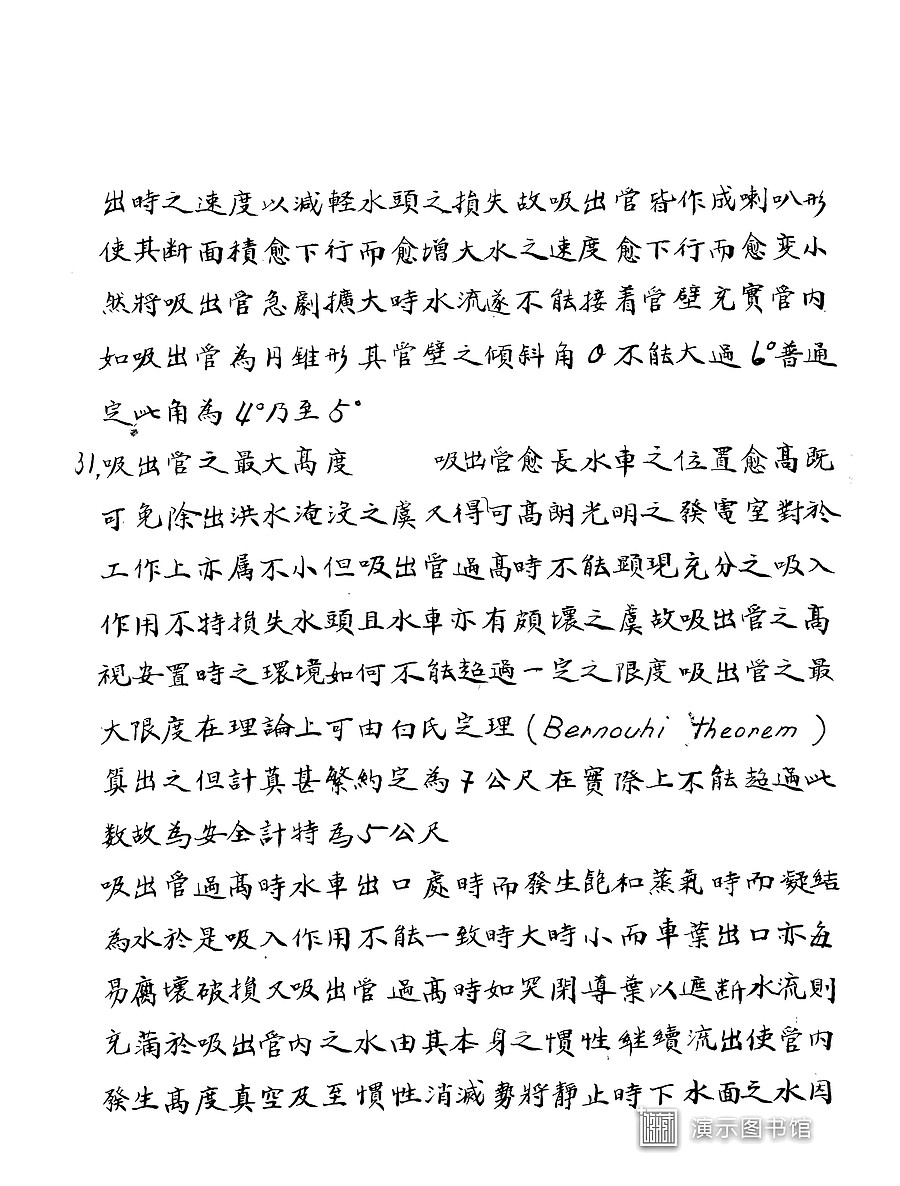 出時之速度以減輕水頭之損失故吸出管皆作成喇叭形
使其断面積愈下行而愈增大水之速度愈下行而愈变小
然將吸出管急劇擴大時水流遂不能接着管壁充實管内
如吸出管為円錐形其管壁之傾斜角θ不能大過6°普通
定此角為4°乃至5°
31,吸出管之最大高度 吸出管愈長水車之位置愈高既
可免除出洪水淹没之虞又得可高朗光明之發電室對於
工作上亦属不小但吸出管過高時不能顕現充分之吸入
作用不特損失水頭且水車亦有頗壞之虞故吸出管之高
視安置時之環境如何不能超過一定之限度吸出管之最
大限度在理論上可由白氏定理(Bernouhi theorem)
算出之但計算甚繁約定為7公尺在實際上不能超過此
数故為安全計特為5公尺
吸出管過高時水車出口處時而發生飽和蒸氣時而凝結
為水於是吸入作用不能一致時大時小而車葉出口亦每
易腐壞破損又吸出管過高時如突閉導葉以遮断水流則
充滿於吸出管内之水由其本身之慣性继續流出使管内
發生高度真空及至慣性消減勢將靜止時下水面之水因
演示图书馆